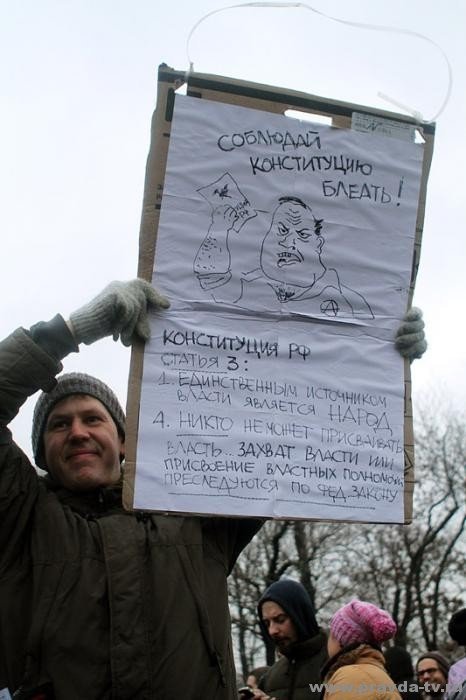 СОБЛЮДАЙ
КОНСТИТУЦИЮ
БЛЕАТЬ!
КОНСТИТУЦИЯ РФ
СТАТЬЯ 3:
1. ЕДИНСТВЕННЫМ ИСТОЧНИКОМ
ВЛАСТИ ЯВЛЯЕТСЯ НАРОД
4. НИКТО НЕ МОЖЕТ ПРИСВАИВАТЬ
ВЛАСТЬ... ЗАХВАТ ВЛАСТИ ИЛИ
ПРИСВОЕНИЕ ВЛАСТНЫХ ПОЛНОМОЧИЙ
ПРЕСЛЕДУЮТСЯ ПО ФЕД. ЗАКОНУ
www.pravda-tv.ru